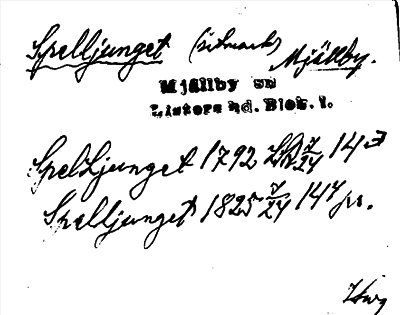 Spelljunget (utmark) Mjällby.
Mjällby sn
Listers hd. Blek. l.
Spelljunget 1792 LA 7/24 143
Spelljunget 1825 7/24 147 jr.